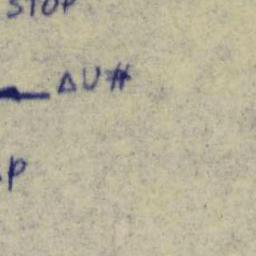 STOP
ΔU#
.p